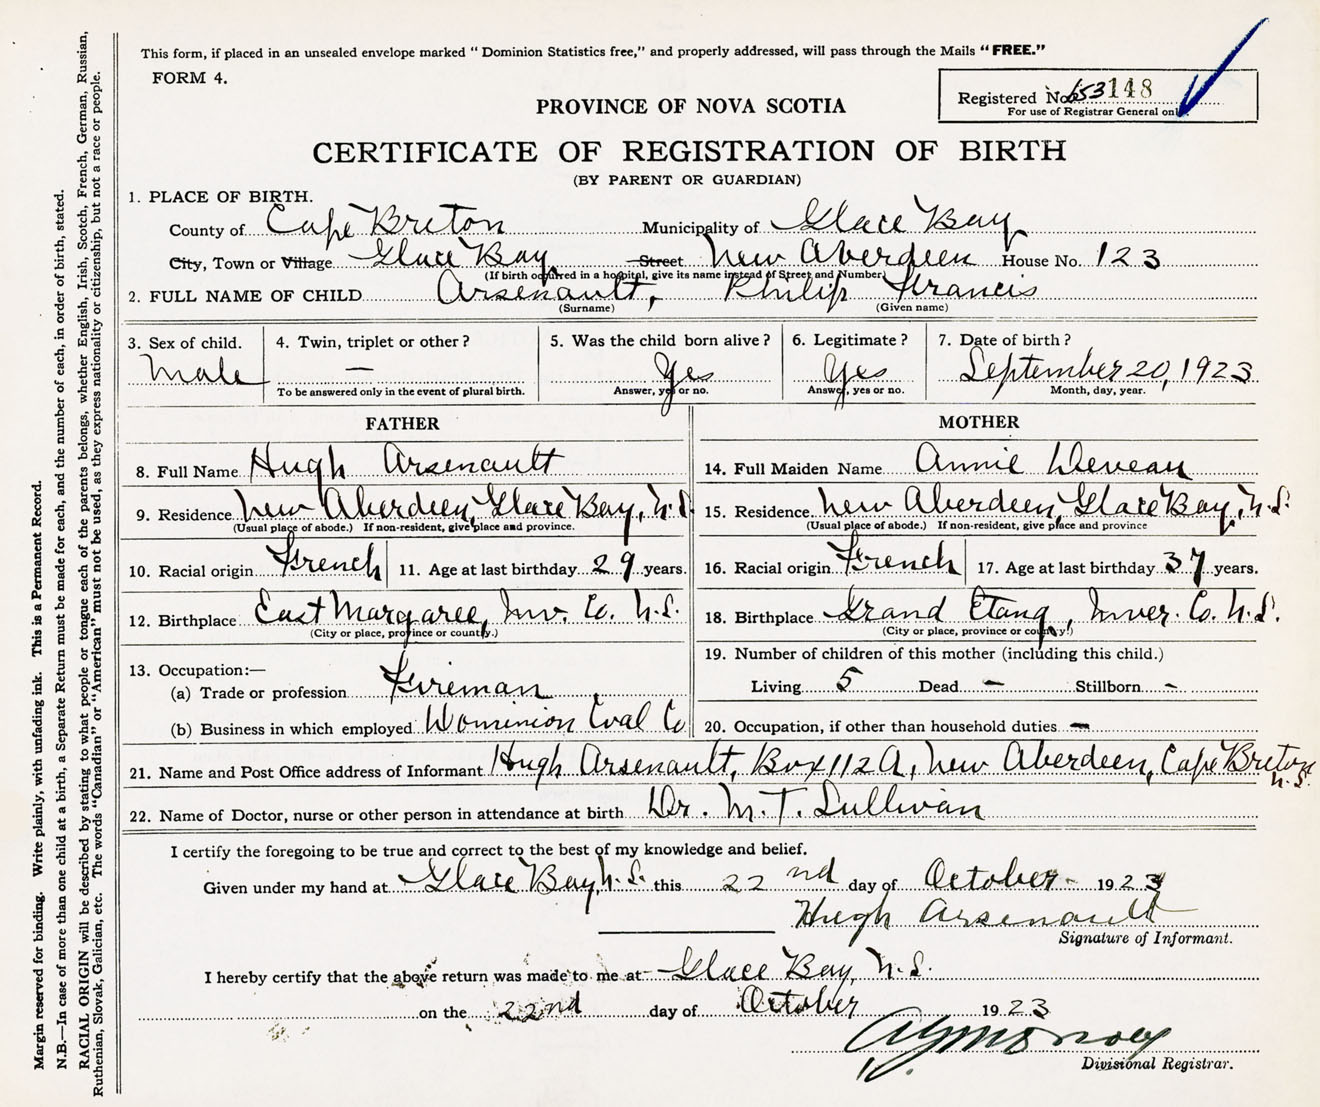 This form, if placed in an unsealed envelope marked "Dominion Statistics free," and properly addressed, will pass through the Mails "FREE."
FORM 4.
Registered No. 653148
For use of Registrar General only.
PROVINCE OF NOVA SCOTIA
CERTIFICATE OF REGISTRATION OF BIRTH
(BY PARENT OR GUARDIAN)
1. PLACE OF BIRTH.
County of Cape Breton Municipality of Glace Bay
City, Town or Village Glace Bay Street New Aberdeen House No. 123
(If birth occurred in a hospital, give its name instead of Street and Number)
2. FULL NAME OF CHILD Arsenault, Philip Francis
(Surname) (Given name)
3. Sex of child. 4. Twin, triplet or other? 5. Was the child born alive? 6. Legitimate? 7. Date of birth?
Male — Yes Yes September 20, 1923
To be answered only in the event of plural birth. Answer, yes or no. Answer, yes or no. Month, day, year.
FATHER MOTHER
8. Full Name Hugh Arsenault 14. Full Maiden Name Annie Deveau
9. Residence New Aberdeen, Glace Bay, N.S. 15. Residence New Aberdeen, Glace Bay, N.S.
(Usual place of abode.) If non-resident, give place and province. (Usual place of abode.) If non-resident, give place and province
10. Racial origin French 11. Age at last birthday 29 years. 16. Racial origin French 17. Age at last birthday 37 years.
12. Birthplace East Margaree, Inv. Co. N.S. 18. Birthplace Grand Etang, Inver. Co. N.S.
(City or place, province or country.) (City or place, province or country)
13. Occupation:— 19. Number of children of this mother (including this child.)
(a) Trade or profession Fireman Living 5 Dead — Stillborn -
(b) Business in which employed Dominion Coal Co 20. Occupation, if other than household duties —
21. Name and Post Office address of Informant Hugh Arsenault, Box 112A, New Aberdeen, Cape Breton
N.S.
22. Name of Doctor, nurse or other person in attendance at birth Dr. M. T. Sullivan
I certify the foregoing to be true and correct to the best of my knowledge and belief.
Given under my hand at Glace Bay, N.S. this 22nd day of October 1923
Hugh Arsenault
Signature of Informant.
I hereby certify that the above return was made to me at Glace Bay, N.S.
on the 22nd day of October 1923
Divisional Registrar.
Margin reserved for binding. Write plainly, with unfading ink. This is a Permanent Record.
N.B.—In case of more than one child at a birth, a Separate Return must be made for each, and the number of each, in order of birth, stated.
RACIAL ORIGIN will be described by stating to what people or tongue each of the parents belongs, whether English, Irish, Scotch, French, German, Russian,
Ruthenian, Slovak, Galician, etc. The words "Canadian" or "American" must not be used, as they express nationality or citizenship, but not a race or people.